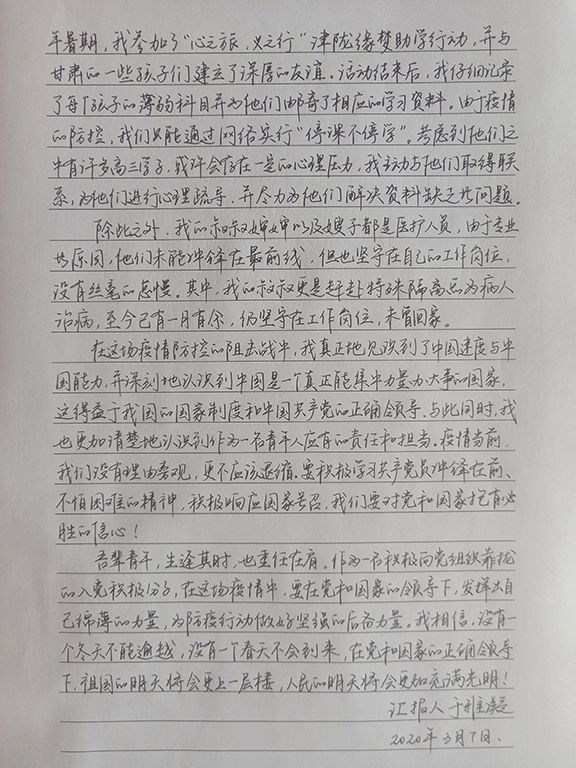 年暑期，我参加了“心之旅，义之行”津陇缘梦助学行动，并与
甘肃的一些孩子们建立了深厚的友谊。活动结束后，我仔细记录
了每个孩子的薄弱科目并为他们邮寄了相应的学习资料。由于疫情
的防控，我们只能通过网络实行“停课不停学”。考虑到他们之
中有许多高三学子，或许会存在一定的心理压力，我主动与他们取得联
系，为他们进行心理疏导，并尽力为他们解决资料缺乏等问题。
除此之外，我的叔叔婶婶以及嫂子都是医护人员，由于专业
等原因，他们未能冲锋在最前线，但也坚守在自己的工作岗位，
没有丝毫的怠慢。其中，我的叔叔更是赶赴特殊隔离点为病人
治病，至今已有一月有余，仍坚守在工作岗位，未曾回家。
在这场疫情防控的阻击战中，我真正地见识到了中国速度与中
国能力，并深刻地认识到中国是一个真正能集中力量办大事的国家，
这得益于我国的国家制度和中国共产党的正确领导。与此同时，我
也更加清楚地认识到作为一名青年人应有的责任和担当。疫情当前，
我们没有理由旁观，更不应该退缩。要积极学习共产党员冲锋在前、
不怕困难的精神，积极响应国家号召，我们要对党和国家抱有必
胜的信心！
吾辈青年，生逢其时，也重任在肩。作为一名积极向党组织靠拢
的入党积极分子，在这场疫情中，要在党和国家的领导下，发挥出自
己绵薄的力量，为防疫行动做好坚强的后备力量。我相信，没有一
个冬天不能逾越，没有一个春天不会到来，在党和国家的正确领导
下，祖国的明天将会更上一层楼，人民的明天将会更加充满光明！
汇报人 于
2020年3月7日.